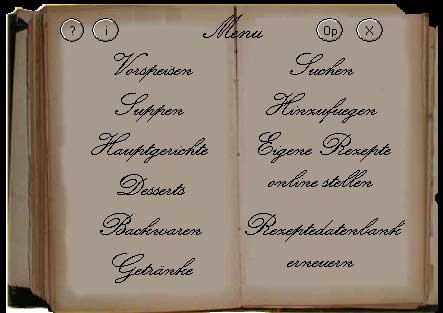 ? i Menu Op X
Vorspeisen
Suppen
Hauptgerichte
Desserts
Backwaren
Getränke
Suchen
Hinzufuegen
Eigene Rezepte
online stellen
Rezeptedatenbank
erneuern